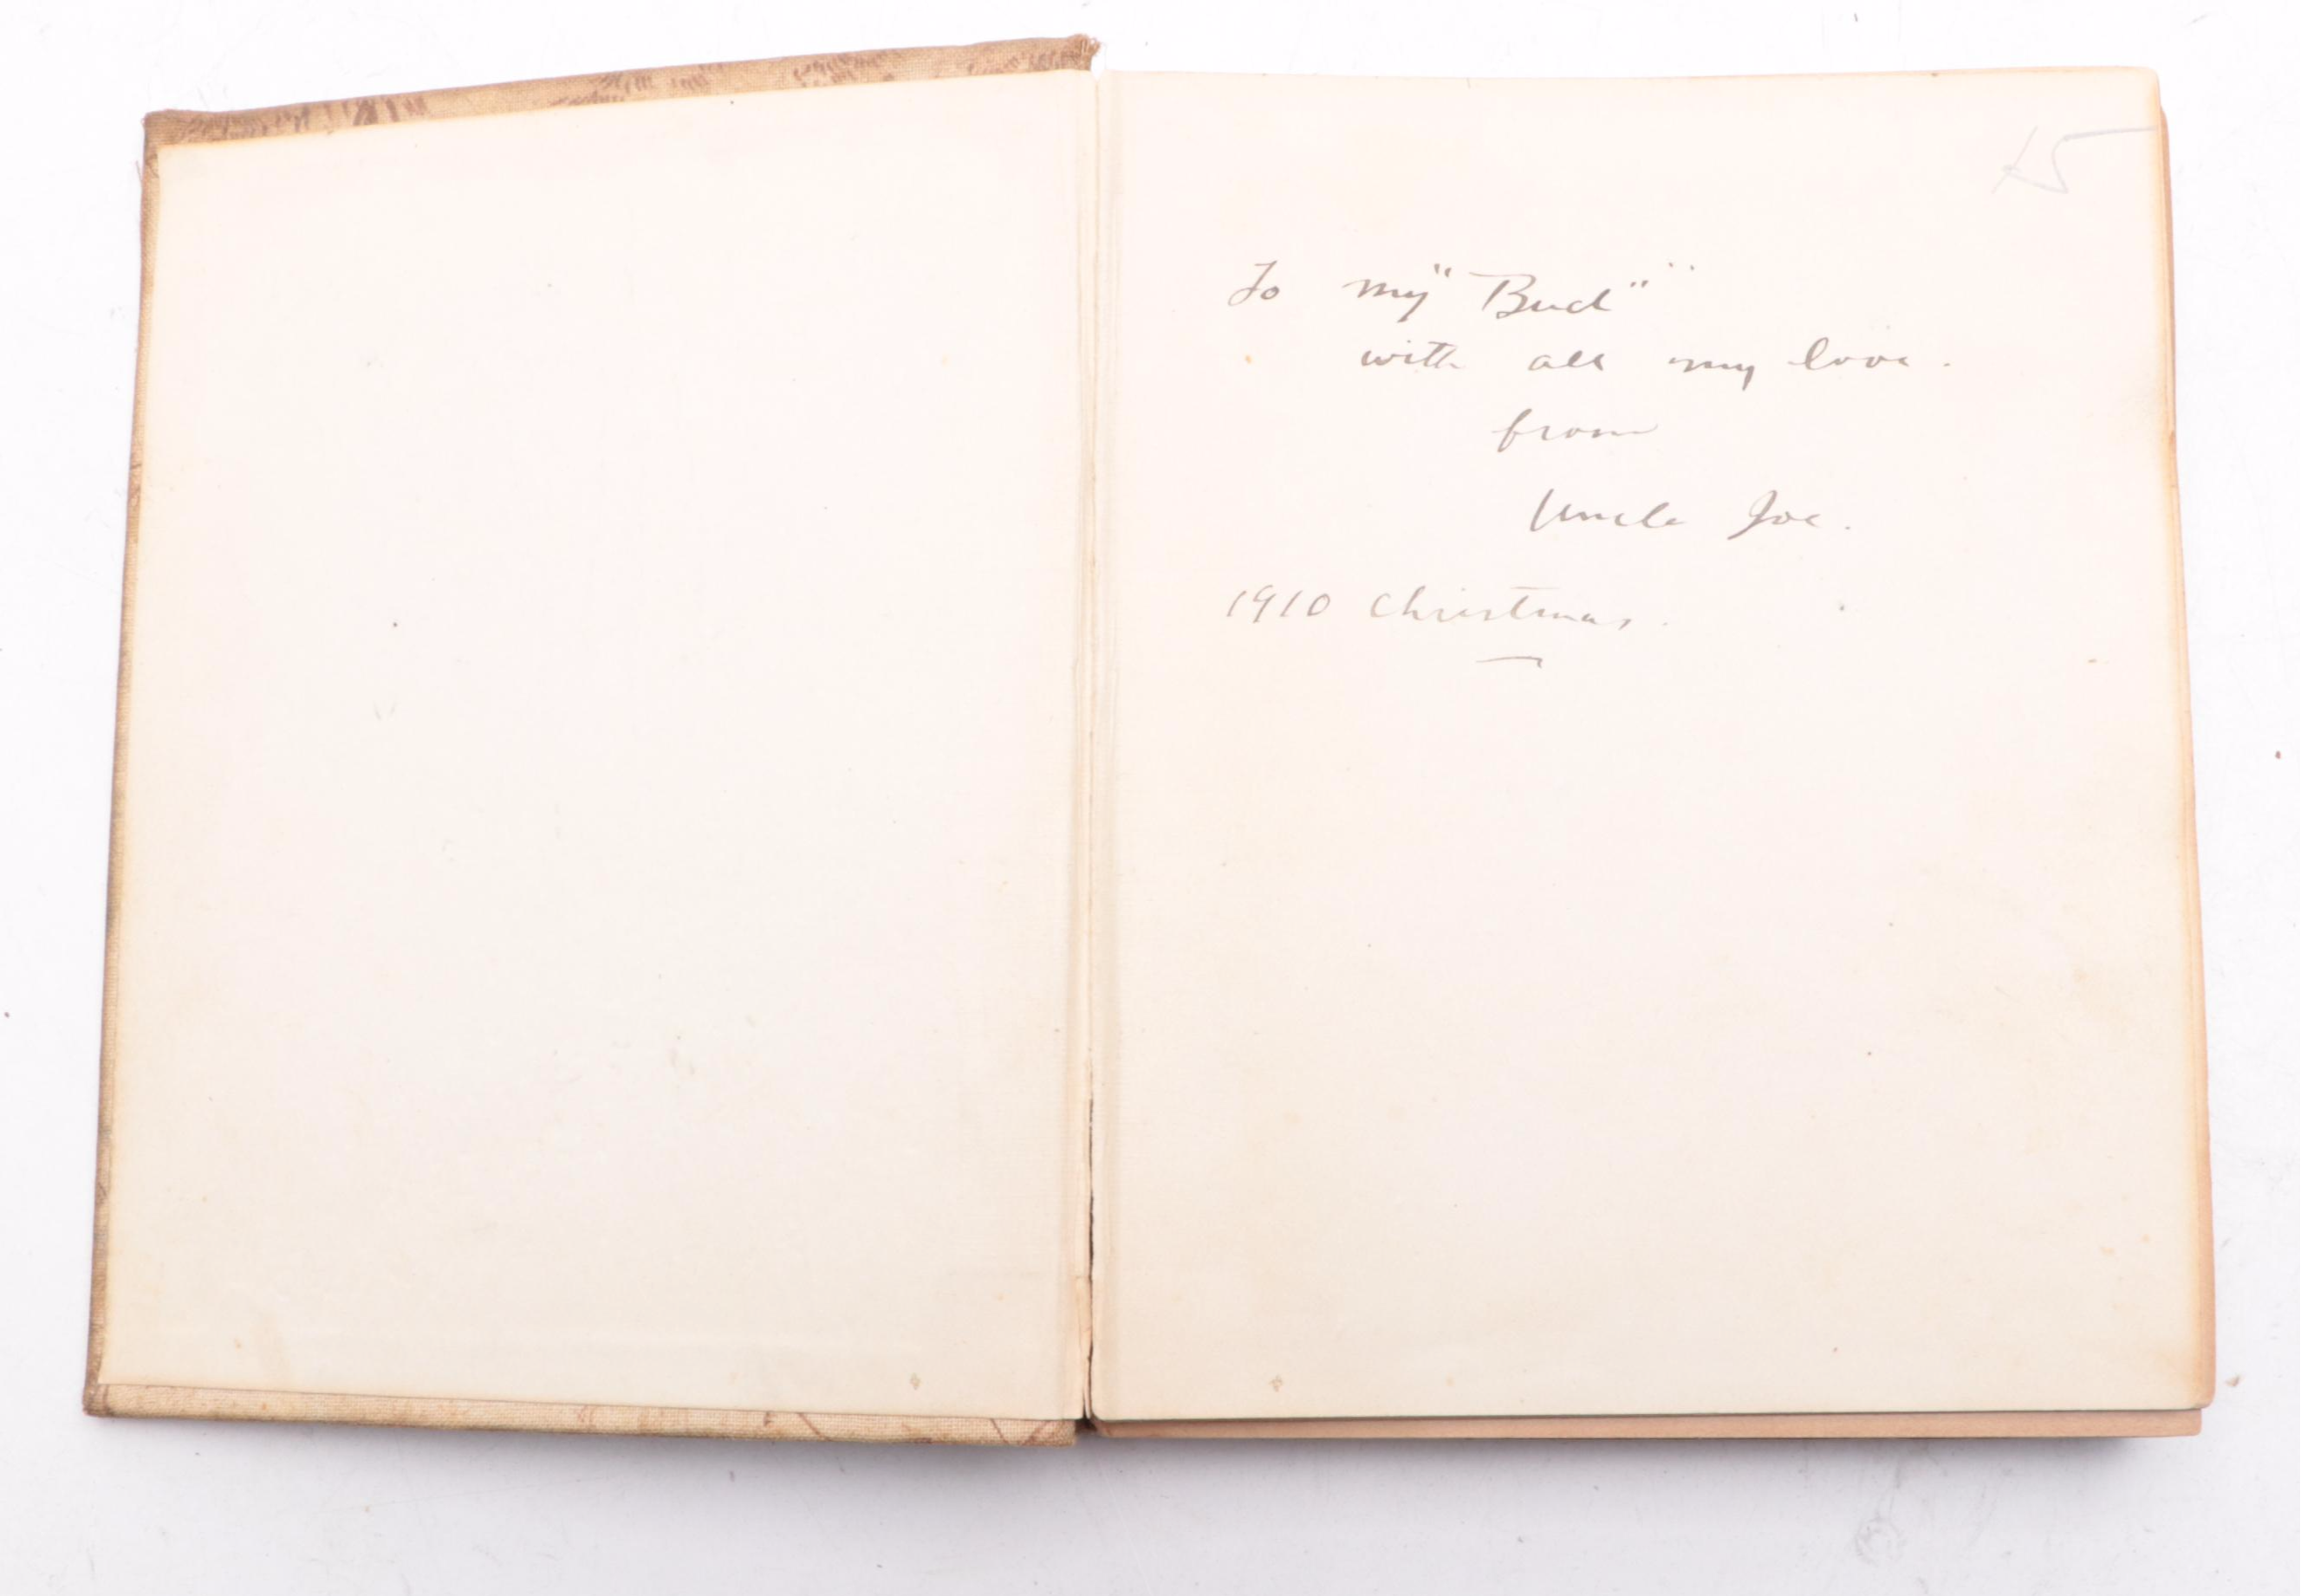 To my "Bud"
with all my love.
from
Uncle Joe.
1910 Christmas.